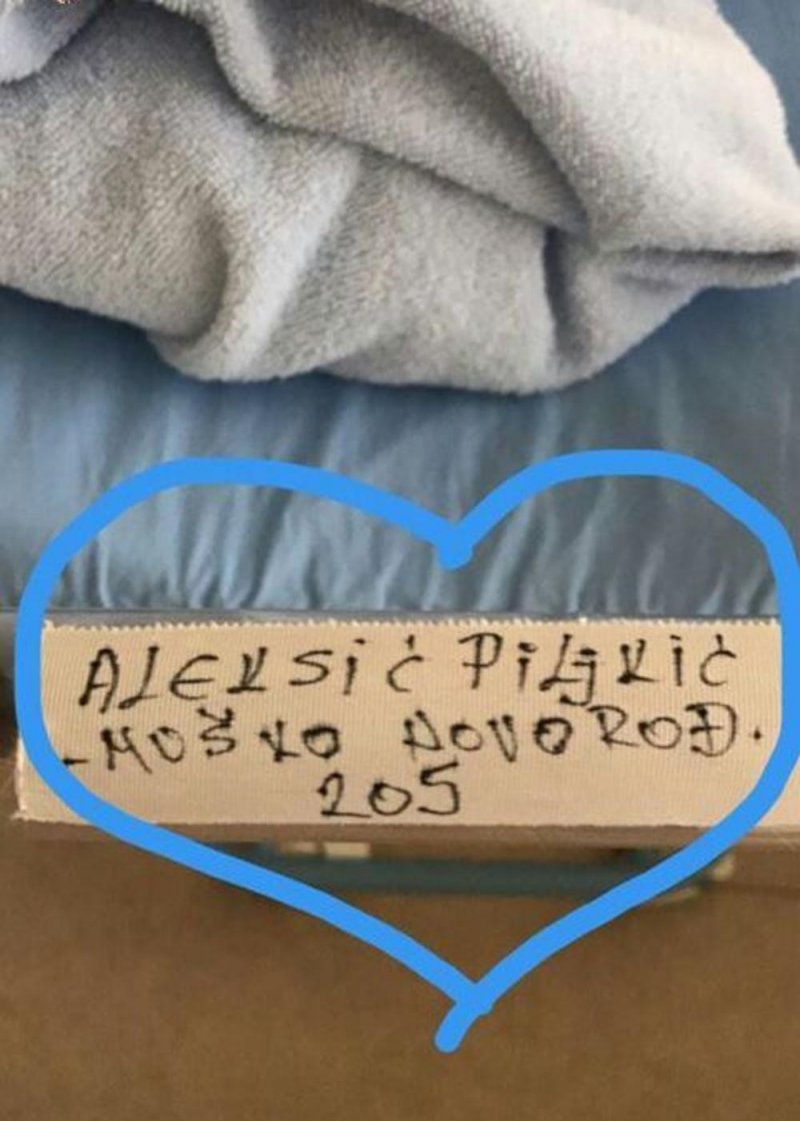 ALEKSiĆ PiLjKiĆ
-MUŠKO NOVOROĐ.
205